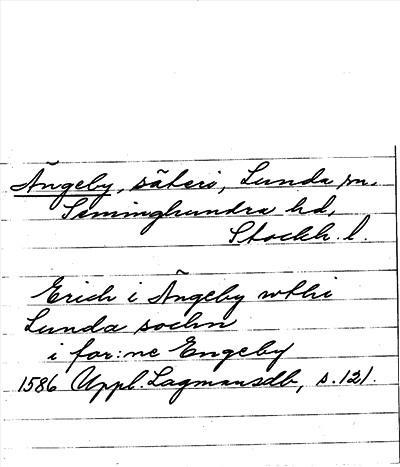 Ängeby, säteri, Lunda sn.
Seminghundra hd,
Stockh. l.
Erich i Ängeby wthi
Lunda sochn
i for:ne Engeby
1586 Uppl. Lagmansdb, s. 121.